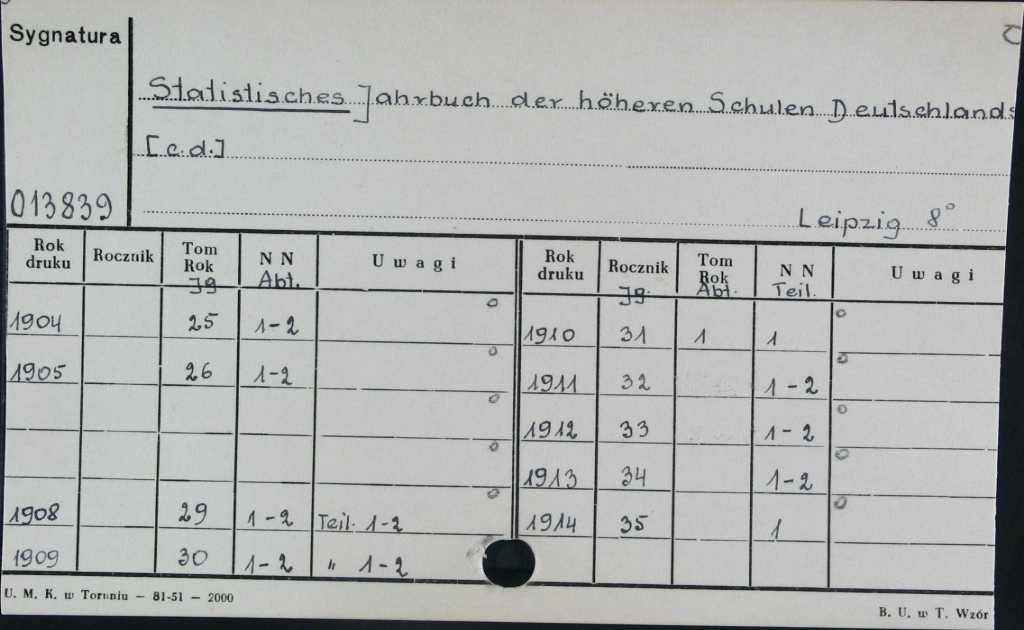 Sygnatura
Statistisches Jahrbuch der höheren Schulen Deutschlands
[c.d.]
013839
Leipzig 8°
Rok druku Rocznik Tom Rok Jg N N Abt. Uwagi
1904 25 1-2
1905 26 1-2
1908 29 1-2 Teil. 1-2
1909 30 1-2 " 1-2
Rok druku Rocznik Jg. Tom Rok Abt. N N Teil. Uwagi
1910 31 1 1
1911 32 1-2
1912 33 1-2
1913 34 1-2
1914 35 1
U. M. K. w Toruniu — 81-51 — 2000
B. U. w T. Wzór